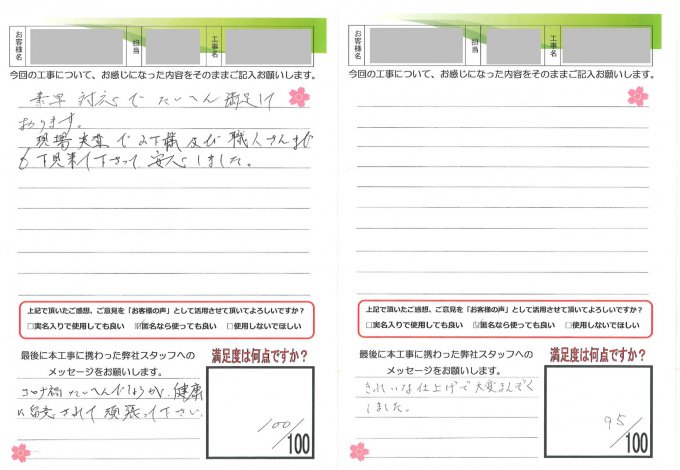 お客様名
担当
工事名
今回の工事について、お感じになった内容をそのままご記入お願いします。
素早い対応でたいへん満足して
おります。
現場調査で 様及び職人さんまで
も下見来て下さって安心しました。
上記で頂いたご感想、ご意見を「お客様の声」として活用させて頂いてよろしいですか?
□実名入りで使用しても良い ☑匿名なら使っても良い □使用しないでほしい
最後に本工事に携わった弊社スタッフへの
メッセージをお願いします。
コロナ禍たいへんでしょうが、健康
に留意されて頑張って下さい。
満足度は何点ですか?
100/100
お客様名
担当
工事名
今回の工事について、お感じになった内容をそのままご記入お願いします。
上記で頂いたご感想、ご意見を「お客様の声」として活用させて頂いてよろしいですか?
□実名入りで使用しても良い ☑匿名なら使っても良い □使用しないでほしい
最後に本工事に携わった弊社スタッフへの
メッセージをお願いします。
きれいな仕上げで大変まんぞく
しました。
満足度は何点ですか?
95/100